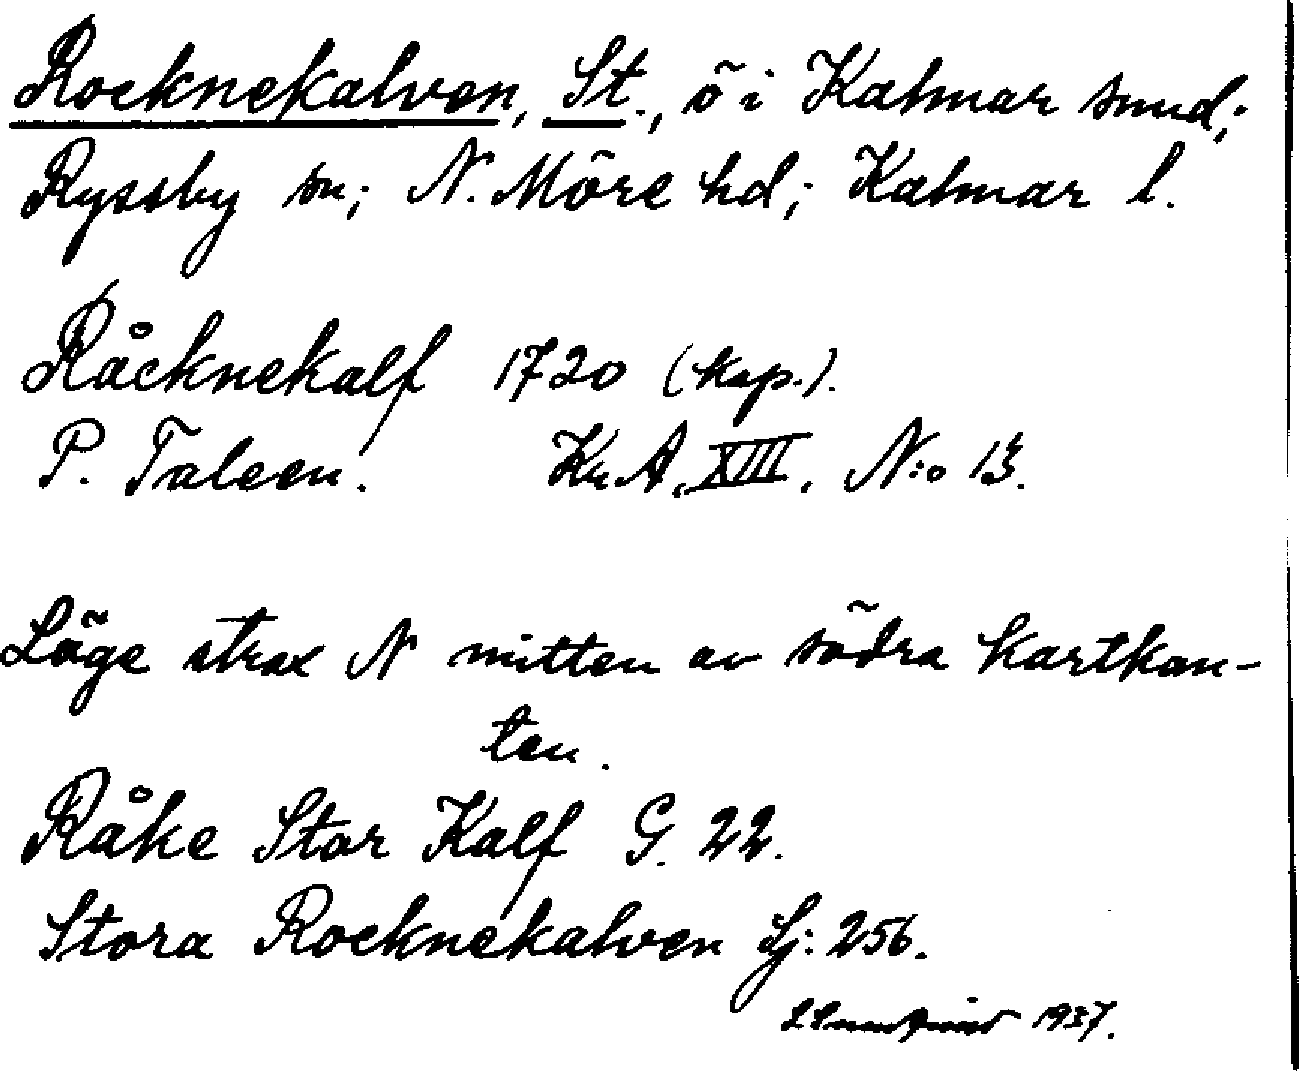 Rocknekalven, St., ö i Kalmar sund;
Ryssby sn; N. Möre hd; Kalmar l.
Råcknekalf 1720 (kop.).
P. Taleen. Kr.A. XIII. N:o 13.
Läge strax N mitten av södra kartkan-
ten.
Råke Stor Kalf G. 22.
Stora Rocknekalven Sj: 256.
1937.